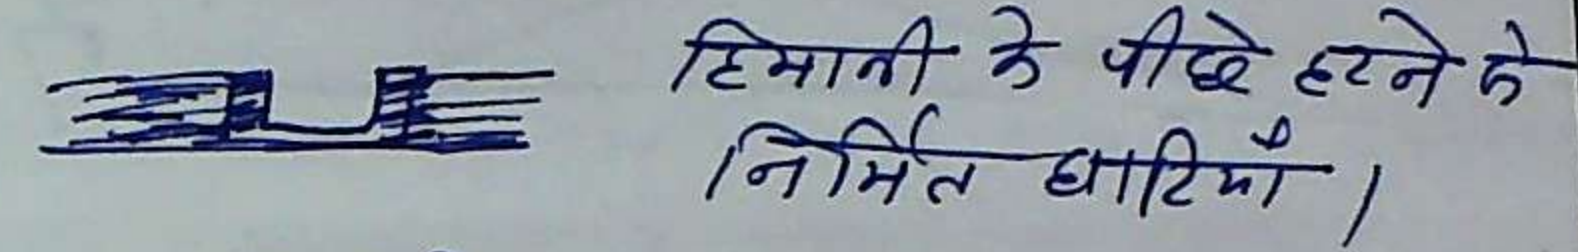 हिमानी के पीछे हटने से
निर्मित घाटियाँ ।